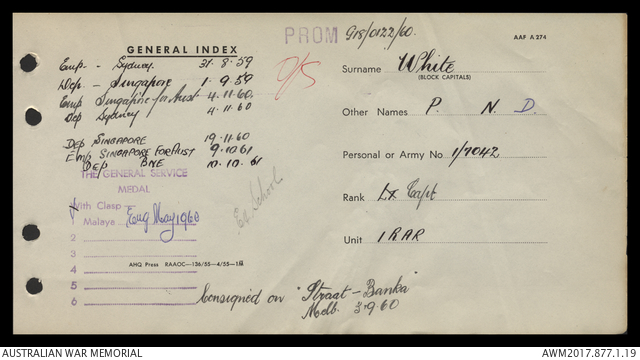 PROM G18/0122/60.
AAF A 274
GENERAL INDEX
Emp - Sydney. 31.8.59
Dep - Singapore 1.9.59
Emp Singapore for Aust. 4.11.60.
Dep Sydney 4.11.60
Dep SINGAPORE 19.11.60
Emp SINGAPORE FOR AUST 9.10.61
Dep BNE 10.10.61
THE GENERAL SERVICE
MEDAL
With Clasp
Malaya Enq May 1960
2
3
4
5
6
AHQ Press RAAOC—136/55—4/55—1M
Surname White
(BLOCK CAPITALS)
Other Names P. N. D.
Personal or Army No. 1/7042
Rank Lt Capt
Unit 1 RAR
Consigned on "Straat - Banka"
Melb. 3.9.60
AUSTRALIAN WAR MEMORIAL
AWM2017.877.1.19